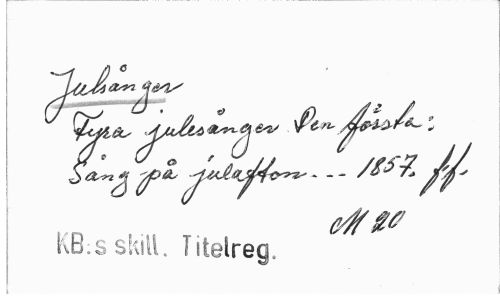 Julsånger
Fyra julesånger Den första:
Sång på julafton --- 1857. f.f.
M 20
KB:s skill. Titelreg.